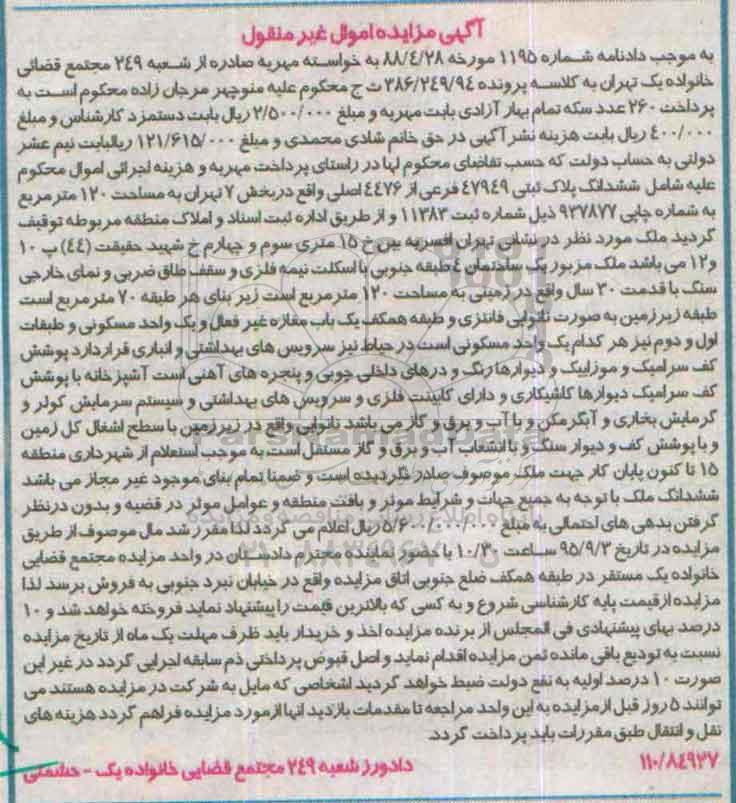 آگهی مزایده اموال غیر منقول
به موجب دادنامه شماره ۱۱۹۵ مورخه ۸۸/۴/۲۸ به خواسته مهریه صادره از شعبه ۲۴۹ مجتمع قضائی
خانواده یک تهران به کلاسه پرونده ۳۸۶/۲۴۹/۹۴ ت ج محکوم علیه منوچهر مرجان زاده محکوم است به
پرداخت ۲۶۰ عدد سکه تمام بهار آزادی بابت مهریه و مبلغ ۲/۵۰۰/۰۰۰ ریال بابت دستمزد کارشناس و مبلغ
۴۰۰/۰۰۰ ریال بابت هزینه نشر آگهی در حق خانم شادی محمدی و مبلغ ۱۲۱/۶۱۵/۰۰۰ ریالبابت نیم عشر
دولتی به حساب دولت که حسب تقاضای محکوم لها در راستای پرداخت مهریه و هزینه اجرائی اموال محکوم
علیه شامل ششدانگ پلاک ثبتی ۴۷۹۴۹ فرعی از ۴۴۷۶ اصلی واقع دربخش ۷ تهران به مساحت ۱۲۰ مترمربع
به شماره چاپی ۹۳۷۸۷۷ ذیل شماره ثبت ۱۱۳۸۳ و از طریق اداره ثبت اسناد و املاک منطقه مربوطه توقیف
گردید ملک مورد نظر در نشانی تهران افسریه بین خ ۱۵ متری سوم و چهارم خ شهید حقیقت (۴۴) پ ۱۰
و ۱۲ می باشد ملک مزبور یک ساختمان ۴ طبقه جنوبی با اسکلت نیمه فلزی و سقف طاق ضربی و نمای خارجی
سنگ با قدمت ۳۰ سال واقع در زمینی به مساحت ۱۲۰ مترمربع است زیر بنای هر طبقه ۷۰ مترمربع است
طبقه زیرزمین به صورت نانوایی فانتزی و طبقه همکف یک باب مغازه غیر فعال و یک واحد مسکونی و طبقات
اول و دوم نیز هر کدام یک واحد مسکونی است در حیاط نیز سرویس های بهداشتی و انباری قرار دارد پوشش
کف سرامیک و موزاییک و دیوارها رنگ و درهای داخلی چوبی و پنجره های آهنی است آشپزخانه با پوشش
کف سرامیک دیوارها کاشیکاری و دارای کابینت فلزی و سرویس های بهداشتی و سیستم سرمایش کولر و
گرمایش بخاری و آبگرمکن و با آب و برق و گاز می باشد نانوایی واقع در زیرزمین با سطح اشغال کل زمین
و با پوشش کف و دیوار سنگ و با انشعاب آب و برق و گاز مستقل است به موجب استعلام از شهرداری منطقه
۱۵ تا کنون پایان کار جهت ملک موصوف صادر نگردیده است و ضمنا تمام بنای موجود غیر مجاز می باشد
ششدانگ ملک با توجه به جمیع جهات و شرایط موثر و بافت منطقه و عوامل موثر در قضیه و بدون درنظر
گرفتن بدهی های احتمالی به مبلغ ۵/۶۰۰/۰۰۰/۰۰۰ ریال اعلام می گردد لذا مقرر شد مال موصوف از طریق
مزایده در تاریخ ۹۵/۹/۳ ساعت ۱۰/۳۰ با حضور نماینده محترم دادستان در واحد مزایده مجتمع قضایی
خانواده یک مستقر در طبقه همکف ضلع جنوبی اتاق مزایده واقع در خیابان نبرد جنوبی به فروش برسد لذا
مزایده از قیمت پایه کارشناسی شروع و به کسی که بالاترین قیمت را پیشنهاد نماید فروخته خواهد شد و ۱۰
درصد بهای پیشنهادی فی المجلس از برنده مزایده اخذ و خریدار باید ظرف مهلت یک ماه از تاریخ مزایده
نسبت به تودیع باقی مانده ثمن مزایده اقدام نماید و اصل قبوض پرداختی ضم سابقه اجرایی گردد در غیر این
صورت ۱۰ درصد اولیه به نفع دولت ضبط خواهد گردید اشخاصی که مایل به شرکت در مزایده هستند می
توانند ۵ روز قبل از مزایده به این واحد مراجعه تا مقدمات بازدید آنها از مورد مزایده فراهم گردد هزینه های
نقل و انتقال طبق مقررات باید پرداخت گردد.
۱۱۰/۸۴۹۲۷
دادورز شعبه ۲۴۹ مجتمع قضایی خانواده یک - حشمتی